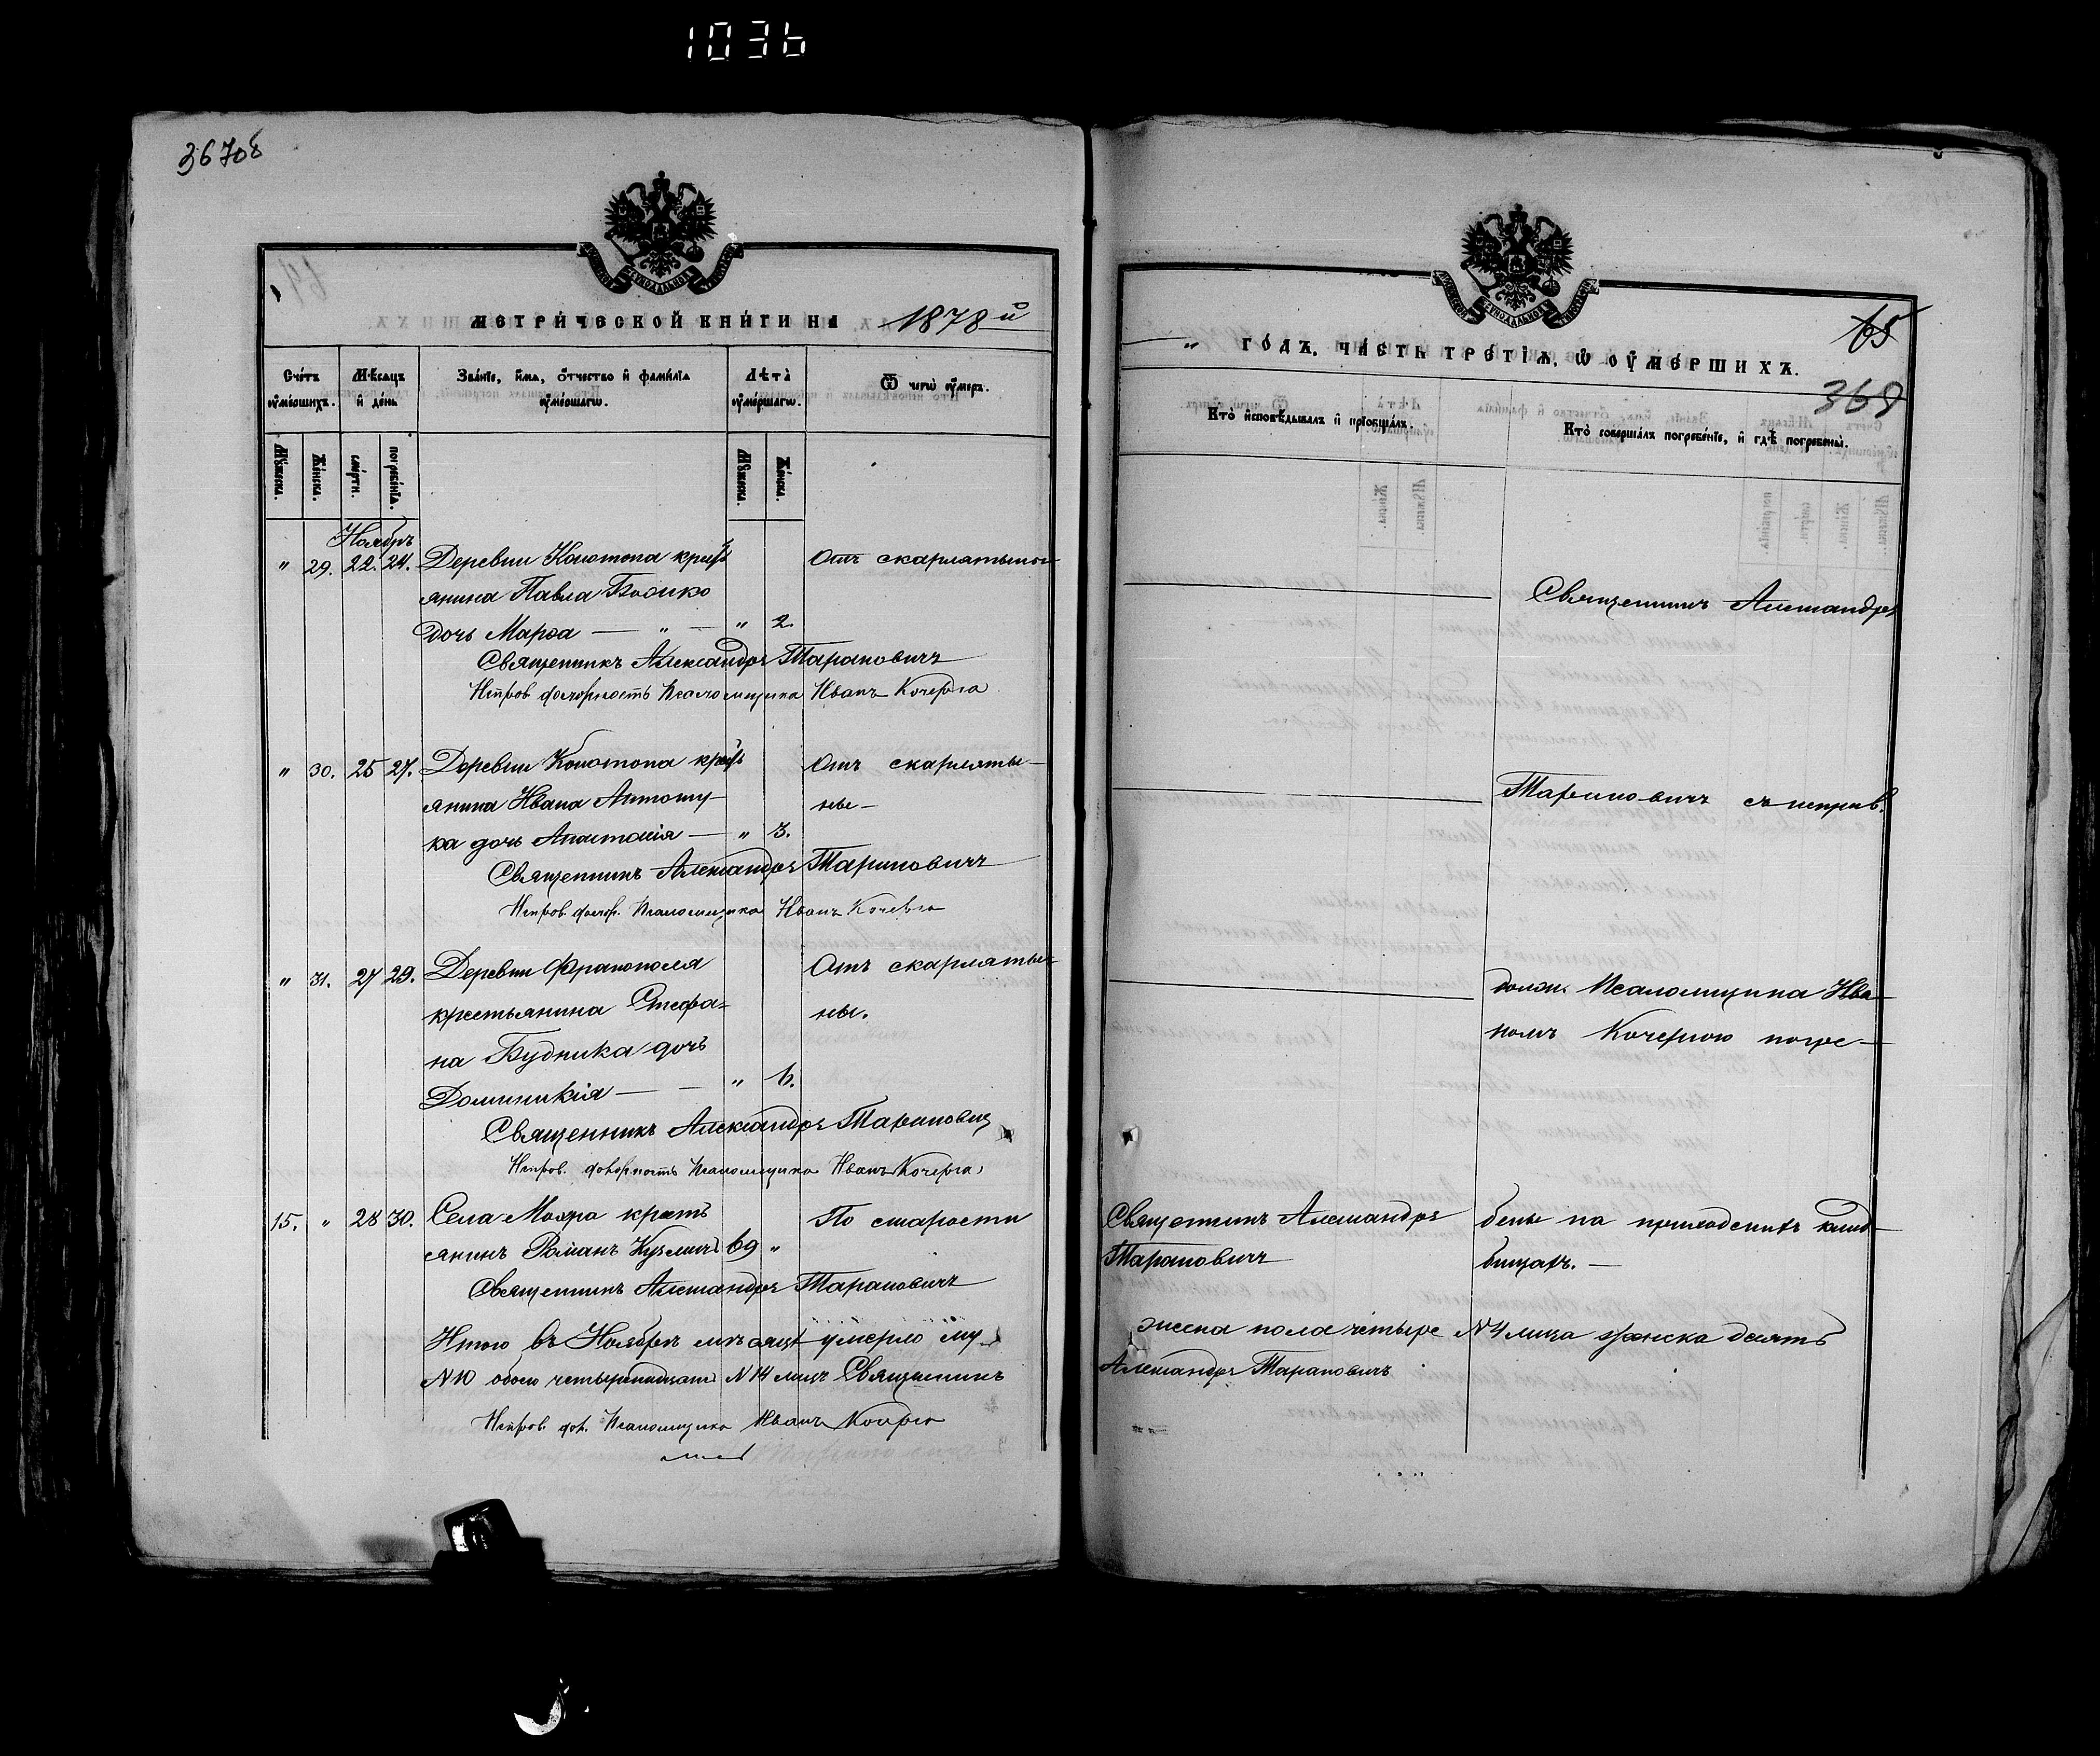 1036
367об
МЕТРИЧЕСКОЙ КНИГИ НА 1878й
Счетъ оумершихъ.
Мѣсяцъ и день
Званїе, имя, отчество и фамилїа оумершагѡ.
Лѣта оумершагѡ.
Ѿ чегѡ оумеръ.
Мꙋжеска.
Женска.
смерти.
погребенїа.
Мꙋжеска.
Женска.
Ноябрь
" 29. 22. 24. Деревни Конотопа крест
янина Павла
дочь Марѳа — " — " 2.
Отъ скарлатыны
Священникъ Александръ Тарановичъ
Псаломщика Иванъ Кочерга
" 30. 25 27. Деревни Конотопа крест
янина Ивана Антошу-
ка дочь Анастасія — " 3.
Отъ скарляты-
ны —
Священникъ Александръ Тарановичъ
Псаломщика Иванъ Кочерга
" 31. 27 29. Деревни Франополя
крестьянина Стефа-
на Будника дочь
Доминикія — — " 6.
Отъ скарляты-
ны.
Священникъ Александръ Тарановичъ
Исправ. должность Псаломщика Иванъ Кочерга
15. " 28 30. Села Мокра крестъ
янинъ Романъ 69 "
По старости
Священникъ Александръ Тарановичъ
Итого въ Ноябрѣ мѣсяцѣ умерло му
N 10 обоего четырнадцать N 14 лицъ Священникъ
Псаломщика Иванъ Кочерга
65
ГОДЪ, ЧАСТЬ ТРЕТЇѦ, Ѡ ОУМЕРШИХЪ.
368
Кто исповѣдывалъ и прїобщалъ.
Кто совершалъ погребенїе, и гдѣ погребены.
Священникъ Александръ
Тарановичъ съ исправ.
должн. Псаломщика Ива-
номъ Кочергою погре-
Священникъ Александръ
Тарановичъ
бены на приходскихъ клад-
бищахъ. —
жеска пола четыре N 4 лица женска десять
Александръ Тарановичъ